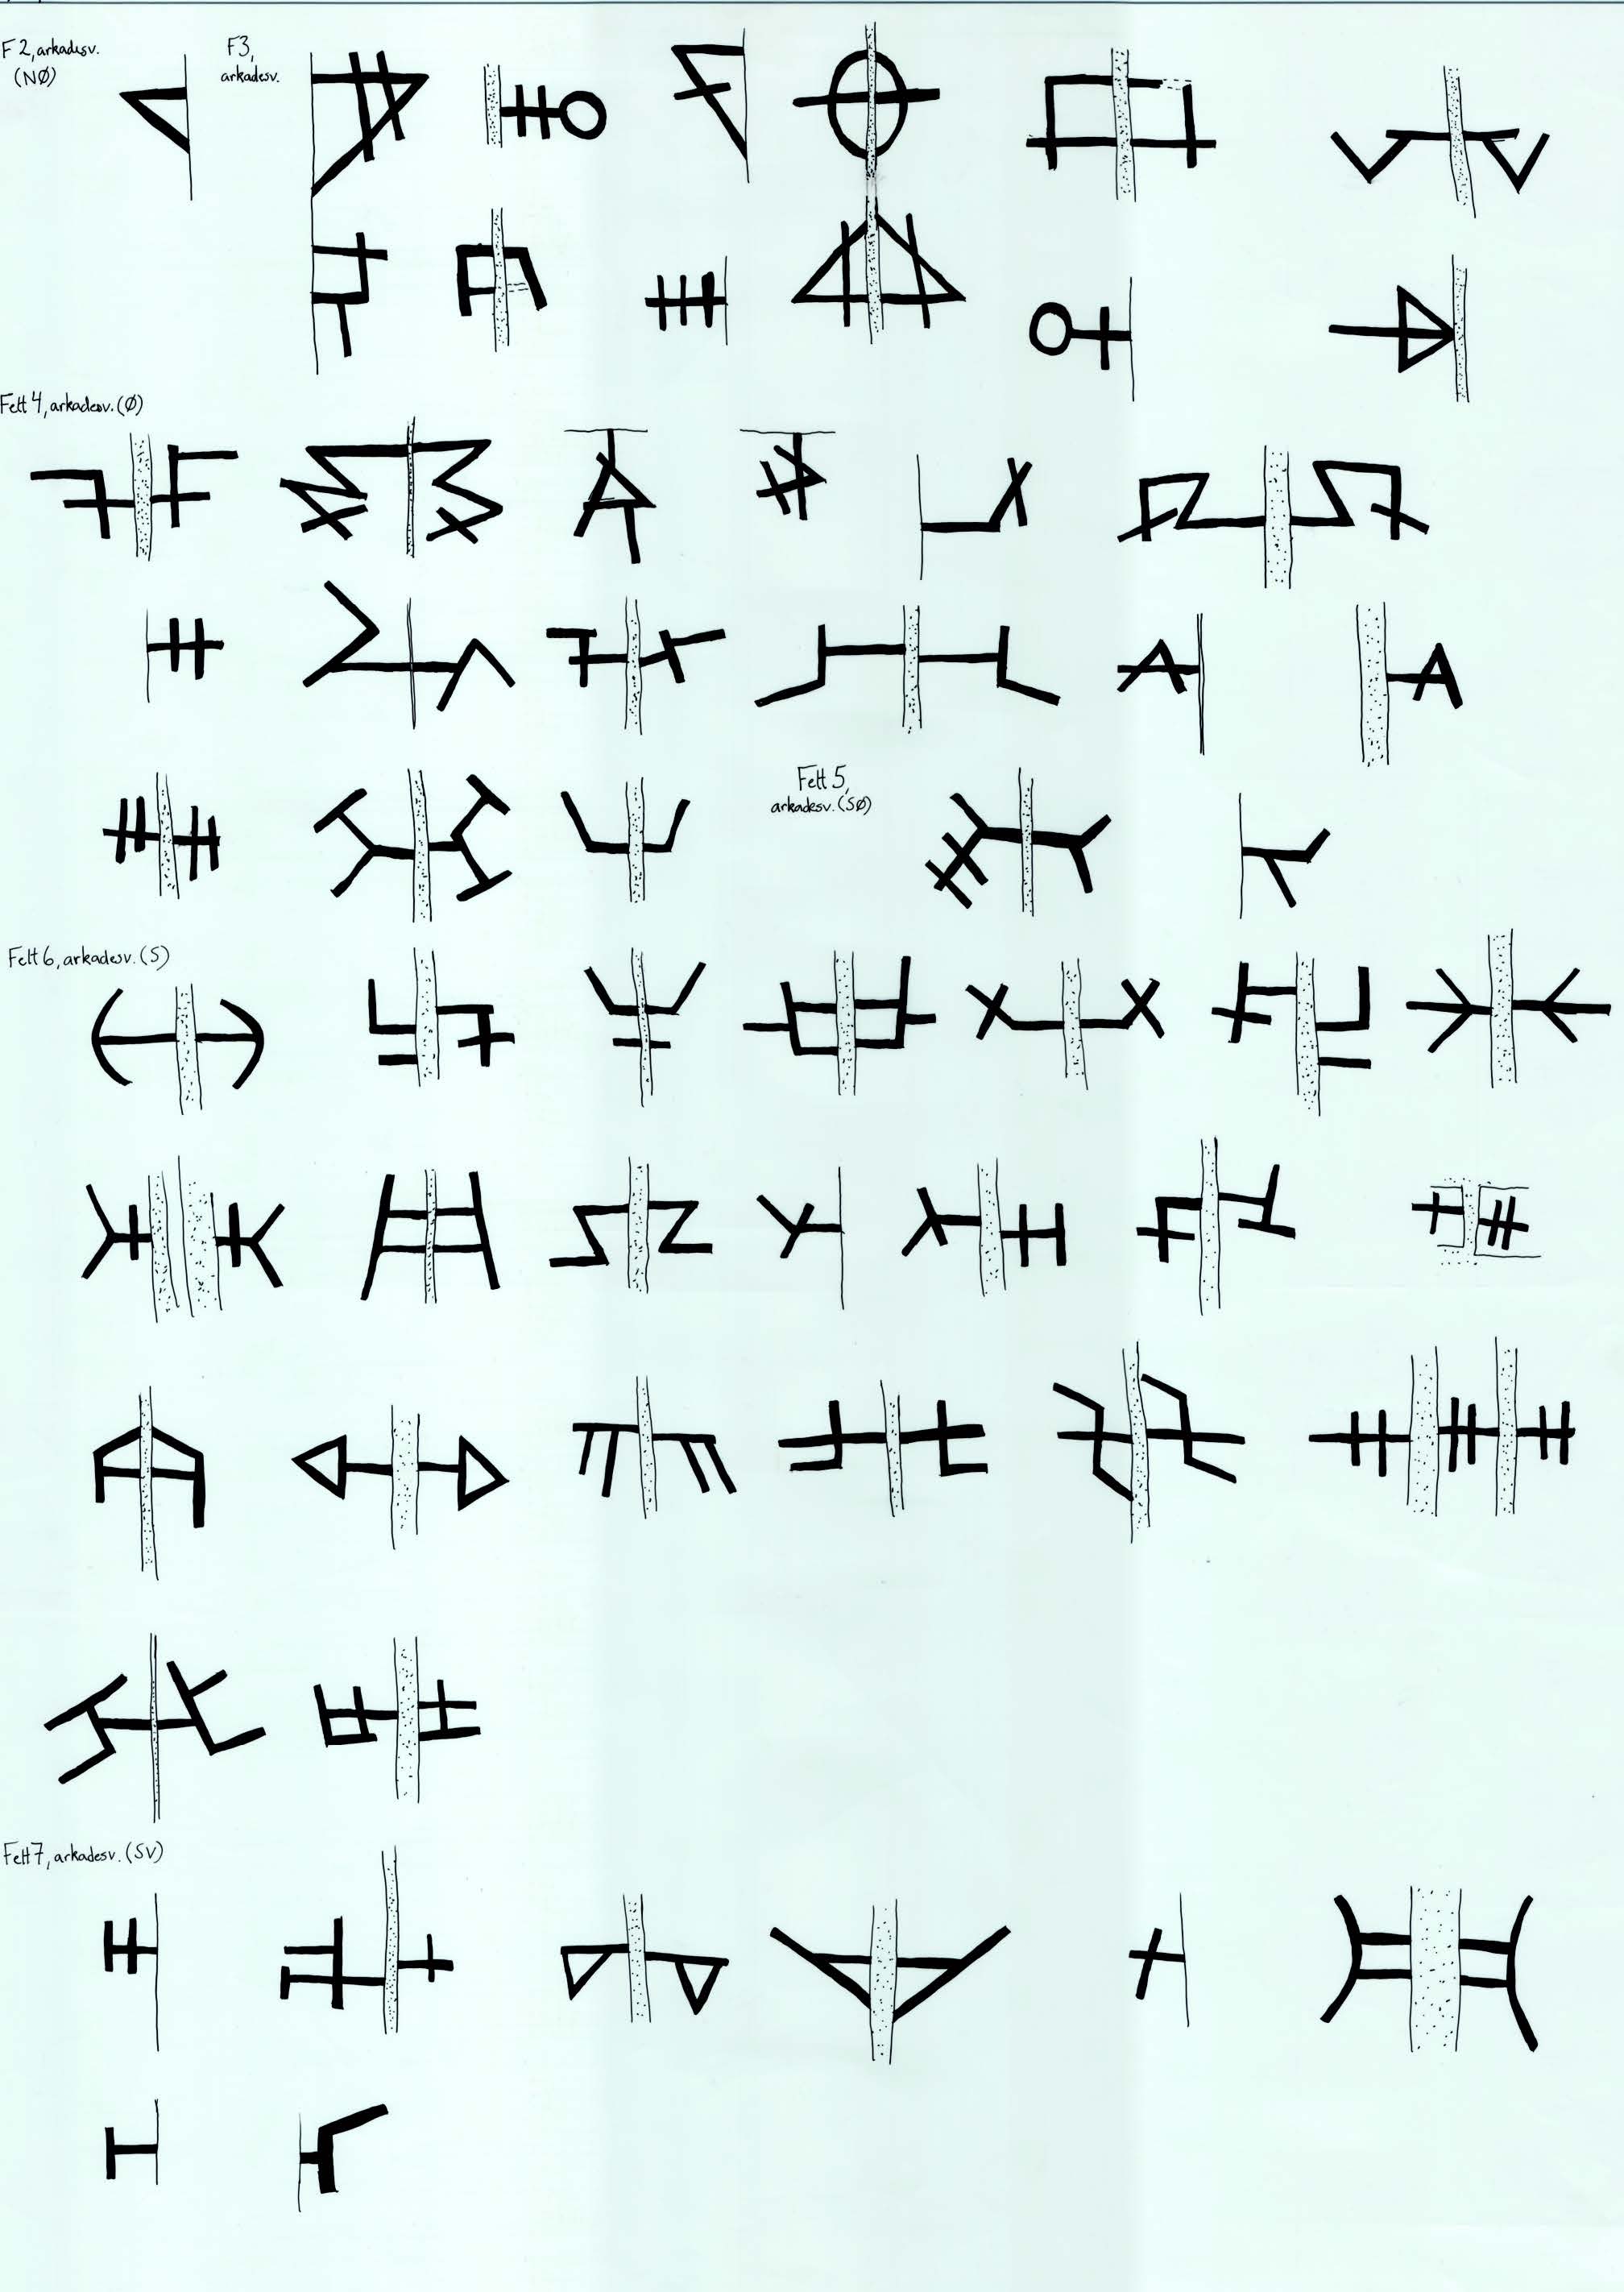 F2, arkadesv.
(NØ)
F3,
arkadesv.
Felt 4, arkadesv. (Ø)
Felt 5,
arkadesv. (SØ)
Felt 6, arkadesv. (S)
Felt 7, arkadesv. (SV)